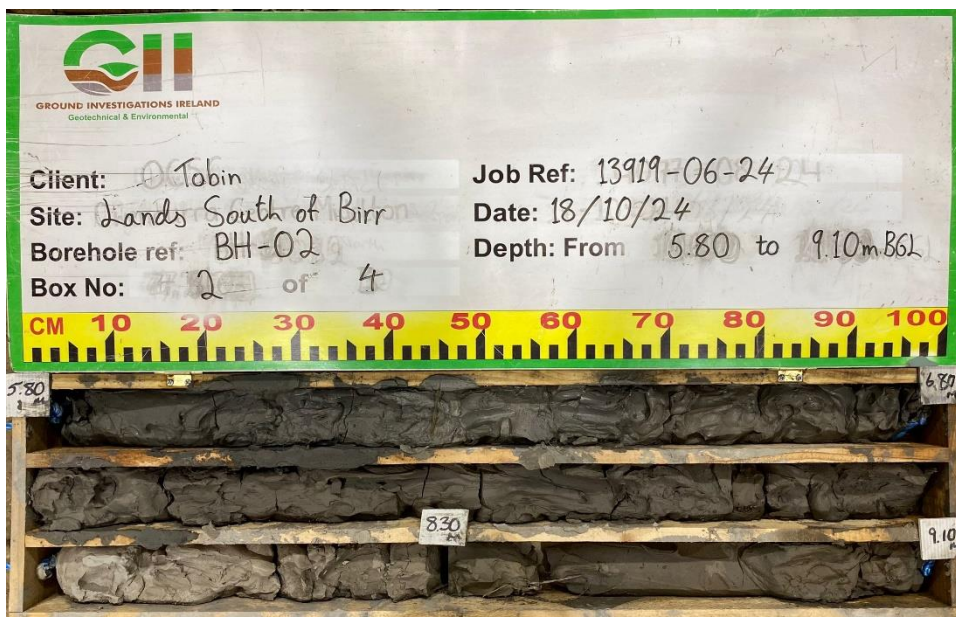 GII
GROUND INVESTIGATIONS IRELAND
Geotechnical & Environmental
Client: Tobin
Site: Lands South of Birr
Borehole ref: BH-02
Box No: 2 of 4
Job Ref: 13919-06-24
Date: 18/10/24
Depth: From 5.80 to 9.10m BGL
CM 10 20 30 40 50 60 70 80 90 100
5.80
6.80
8.30
9.10